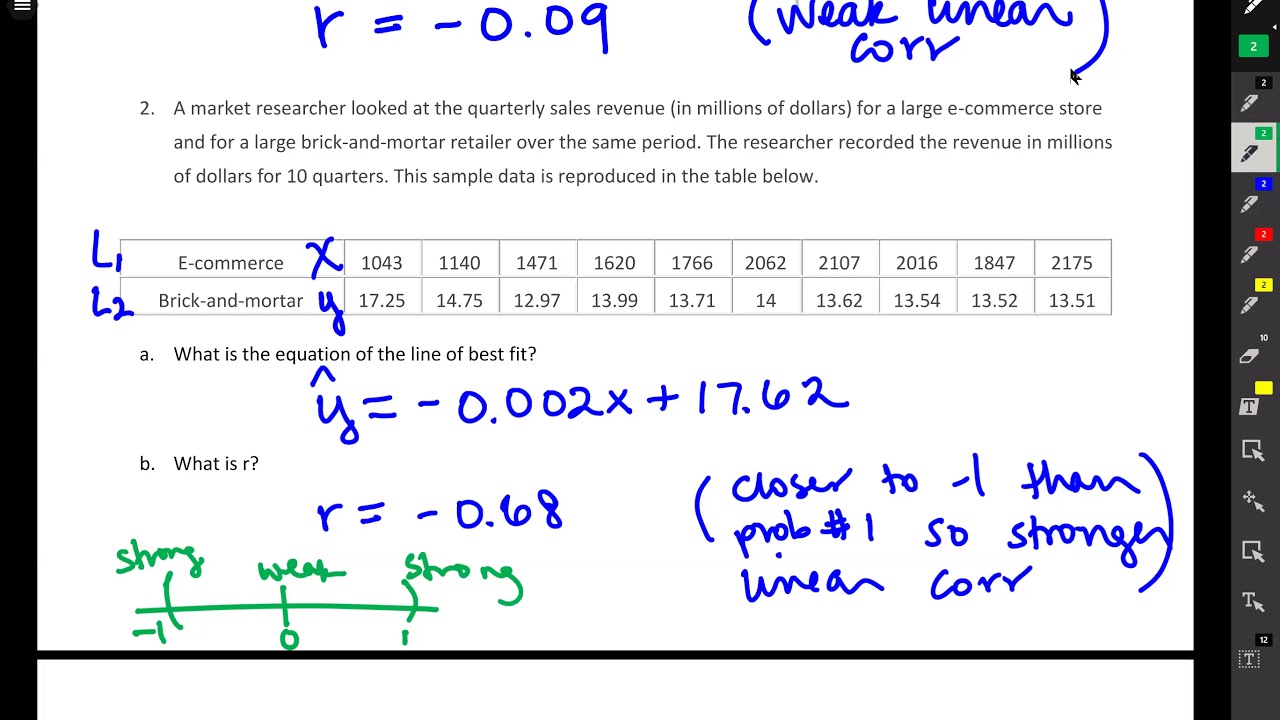 r = -0.09
(Weak linear
corr)
2. A market researcher looked at the quarterly sales revenue (in millions of dollars) for a large e-commerce store
and for a large brick-and-mortar retailer over the same period. The researcher recorded the revenue in millions
of dollars for 10 quarters. This sample data is reproduced in the table below.
L1 E-commerce x 1043 1140 1471 1620 1766 2062 2107 2016 1847 2175
L2 Brick-and-mortar y 17.25 14.75 12.97 13.99 13.71 14 13.62 13.54 13.52 13.51
a. What is the equation of the line of best fit?
ŷ = -0.002x + 17.62
b. What is r?
r = -0.68
(closer to -1 than
prob #1 so stronger
linear corr)
strong weak strong
-1 0 1
2
2
2
2
2
2
10
T
T
12
T